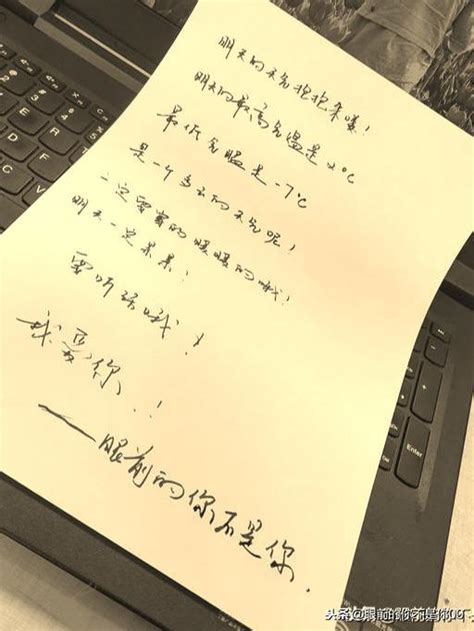 明天的天气抱抱来喽！
明天的最高气温是2℃
最低气温是-7℃
是一个多云的天气呢！
一定要穿的暖暖的哦！
明天一定乖乖！
要听话哦！
我爱你！
—眼前的你不是你.
头条@眼前的你不是你